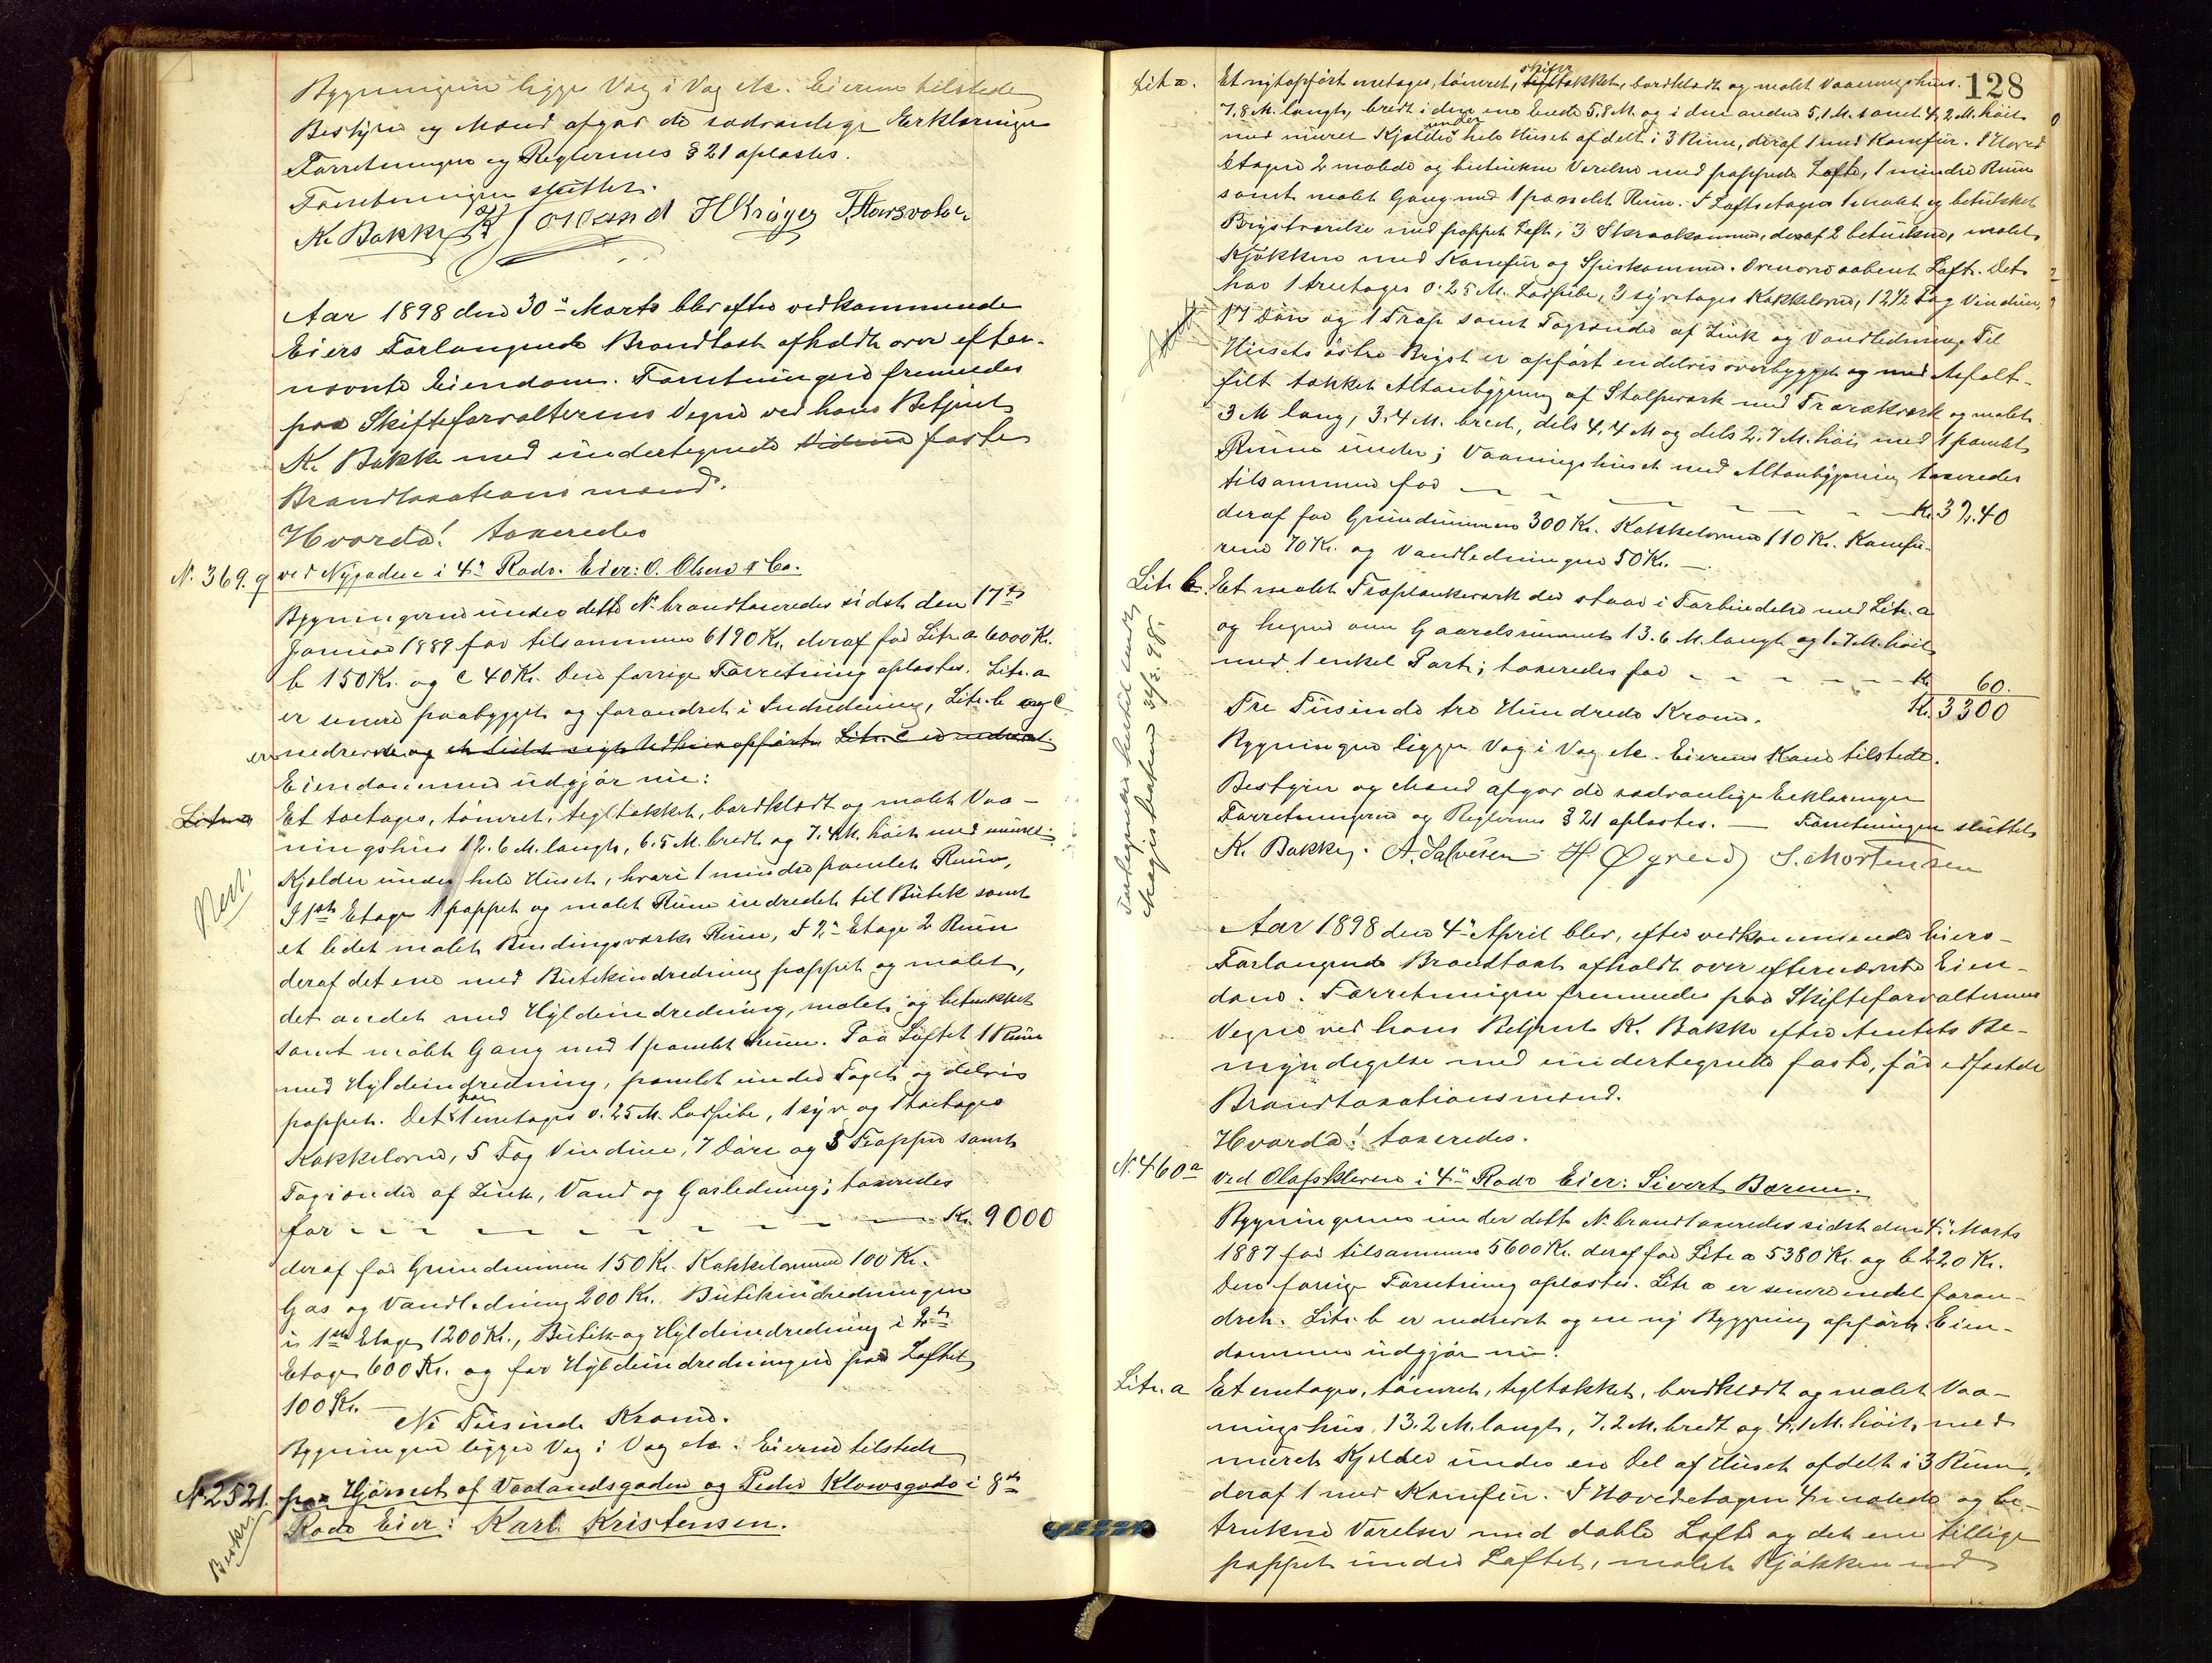 Bygningerne ligger Væg i Væg etc. Eieren tilstede
Bestyrer og Mænd afgav de sædvanlige Erklæringer
Forretningen og Reglernes § 21 oplæstes.
Forretningen sluttet.
K. Bakke H Krøger T. Haarsvoler
Aar 1898 den 30te Marts blev efter vedkommende
Eiers Forlangende Brandtaxt afholdt over efter-
nævnte Eiendom. Forretningen fremmedes
paa Skifteforvalterens Vegne ved hans Betjent
K. Bakke med undertegnede faste
Brandtaxationsmænd.
Hvorda! taxeredes
N. 369. g ved Nygaden i 4de Rode. Eier: O. Olsen & Co.
Bygningerne under dette No brandtaxeredes sidst den 17de
Januar 1889 for tilsammen 6190 Kr. deraf for Litr. a 6000 Kr.
b 150 Kr. og c 40 Kr. Den forrige Forretning oplæstes. Litr. a
er senere paabygget og forandret i Indredning, Litr. b og c
er nedrevne og
Eiendommen udgjør nu:
Litr. a Et toetages, tømret, tegltækket, bordklædt og malet Vaa-
ningshus 12.6 M. langt, 6.5 M. bredt og 7.4 M. høit med muret
Kjelder under hele Huset, hvori 1 mindre panelet Rum,
Nedr.
I 1ste Etage 1 pappet og malet Rum indredet til Butik samt
et ledet malet Bindingsværks Rum, I 2den Etage 2 Rum
deraf det ene med Butikindredning pappet og malet,
det andet med Hyldeindredning, malet og betrukket
samt malet Gang med 1 panelet Rum. Paa Loftet 1 Rum
med Hyldeindredning, panelet under Taget og delvis
pappet. Det har 1 enetages 0.25 M. Ladpibe, 1 syv og 1 toetages
Kakkelovne, 5 Fag Vinduer, 7 Døre og 3 Trapper samt
Tagrender af Zink, Vand og Gasledning; taxeredes
for Kr. 9000
deraf for Grundmuren 150 Kr. Kakkelovnene 100 Kr.
Gas og Vandledning 200 Kr. Butikindredningen
i 1ste Etage 1200 Kr., Butik og Hyldeindredning i 2den
Etage 600 Kr. og for Hyldeindredningen paa Loftet
100 Kr. —
Ni Tusinde Kroner.
Bygningen ligger Væg i Væg etc. Eieren tilstede
N 2521. paa Hjørnet af Vaalandsgaden og Peder Klowsgade i 8de
Rode Eier: Karl Kristensen.
Beskr.
128
Litr. a. Et nyopført enetages, tømret, skifertækket, bordklædt og malet Vaaningshus.
7,8 M. langt, bredt i den ene Ende 5,8 M. og i den anden 5,1 M. samt 4,2 M. høit
med muret Kjelder under hele Huset afdelt i 3 Rum, deraf 1 med Komfur. I Hoved
Etagen 2 malede og betrukne Værelser med pappede Lofte, 1 mindre Rum
samt malet Gang med 1 panelet Rum. I Loftsetagen 1 malet og betrukket
Brystværelse med pappet Loft, 3 Skraakammer, deraf 2 betrukne, malet
Kjøkken med Komfur og Spiskammer. Ovenover aabent Loft. Det
har 1 treetages 0.25 M. Ladpibe, 3 syvetages Kakkelovne, 12½ Fag Vinduer,
17 Døre og 1 Trap samt Tagrender af Zink og Vandledning. Til
Husets østre Bryst er opført en delvis overbygget og med Asfalt-
filt tækket Altanbygning af Stolpeværk med Trærækværk og malet
3 M lang, 3.4 M. bred, dels 4,4 M og dels 2.7 M. høi med 1 panelet
Rum under; Vaaningshuset med Altanbygning taxeredes
tilsammen for Kr. 3240
deraf for Grundmuren 300 Kr. Kakkelovnene 110 Kr. Komfu-
rene 70 Kr. og Vandledningen 50 Kr. —
Litr. b. Et malet Træplankeværk der staar i Forbindelse med Litr. a
og hegner om Gaardsrummet 13.6 M. langt og 1.7 M. høit
med 1 enkel Port; taxeredes for Kr. 60.
Tre Tusinde tre Hundrede Kroner. Kr. 3300
Bygningen ligger Væg i Væg etc. Eierens Kone tilstede.
Bestyrer og Mænd afgav de sædvanlige Erklæringer
Forretningen og Reglernes § 21 oplæstes. — Forretningen sluttet
K. Bakke. A. Salvesen H. Øgreid S. Mortensen
Aar 1898 den 4de April blev, efter vedkommende Eiers
Forlangende Brandtaxt afholdt over efternævnte Eien-
dom. Forretningen fremmedes paa Skifteforvalterens
Vegne ved hans Betjent K. Bakke efter Amtets Be-
myndigelse med undertegnede faste, før edfæstede
Brandtaxationsmænd.
Hvorda! taxeredes.
N. 460a ved Olafskleven i 4de Rode Eier: Sivert Bærem.
Bygningerne under dette No brandtaxeredes sidst den 4de Marts
1887 for tilsammen 5600 Kr. deraf for Litr a 5380 Kr. og b 220 Kr.
Den forrige Forretning oplæstes. Litr a er senere endel foran-
dret. Litr. b er nedrevet og en ny Bygning opført. Eien-
dommen udgjør nu:
Litr. a Et enetages, tømret, tegltækket, bordklædt og malet Vaa-
ningshus, 13.2 M. langt, 7.2 M. bredt og 4.1 M. høit, med
muret Kjelder under en Del af Huset afdelt i 3 Rum,
deraf 1 med Komfur. I Hovedetagen 4 malede og be-
trukne Værelser med doble Lofte og det ene tillige
pappet under Loftet, malet Kjøkken med